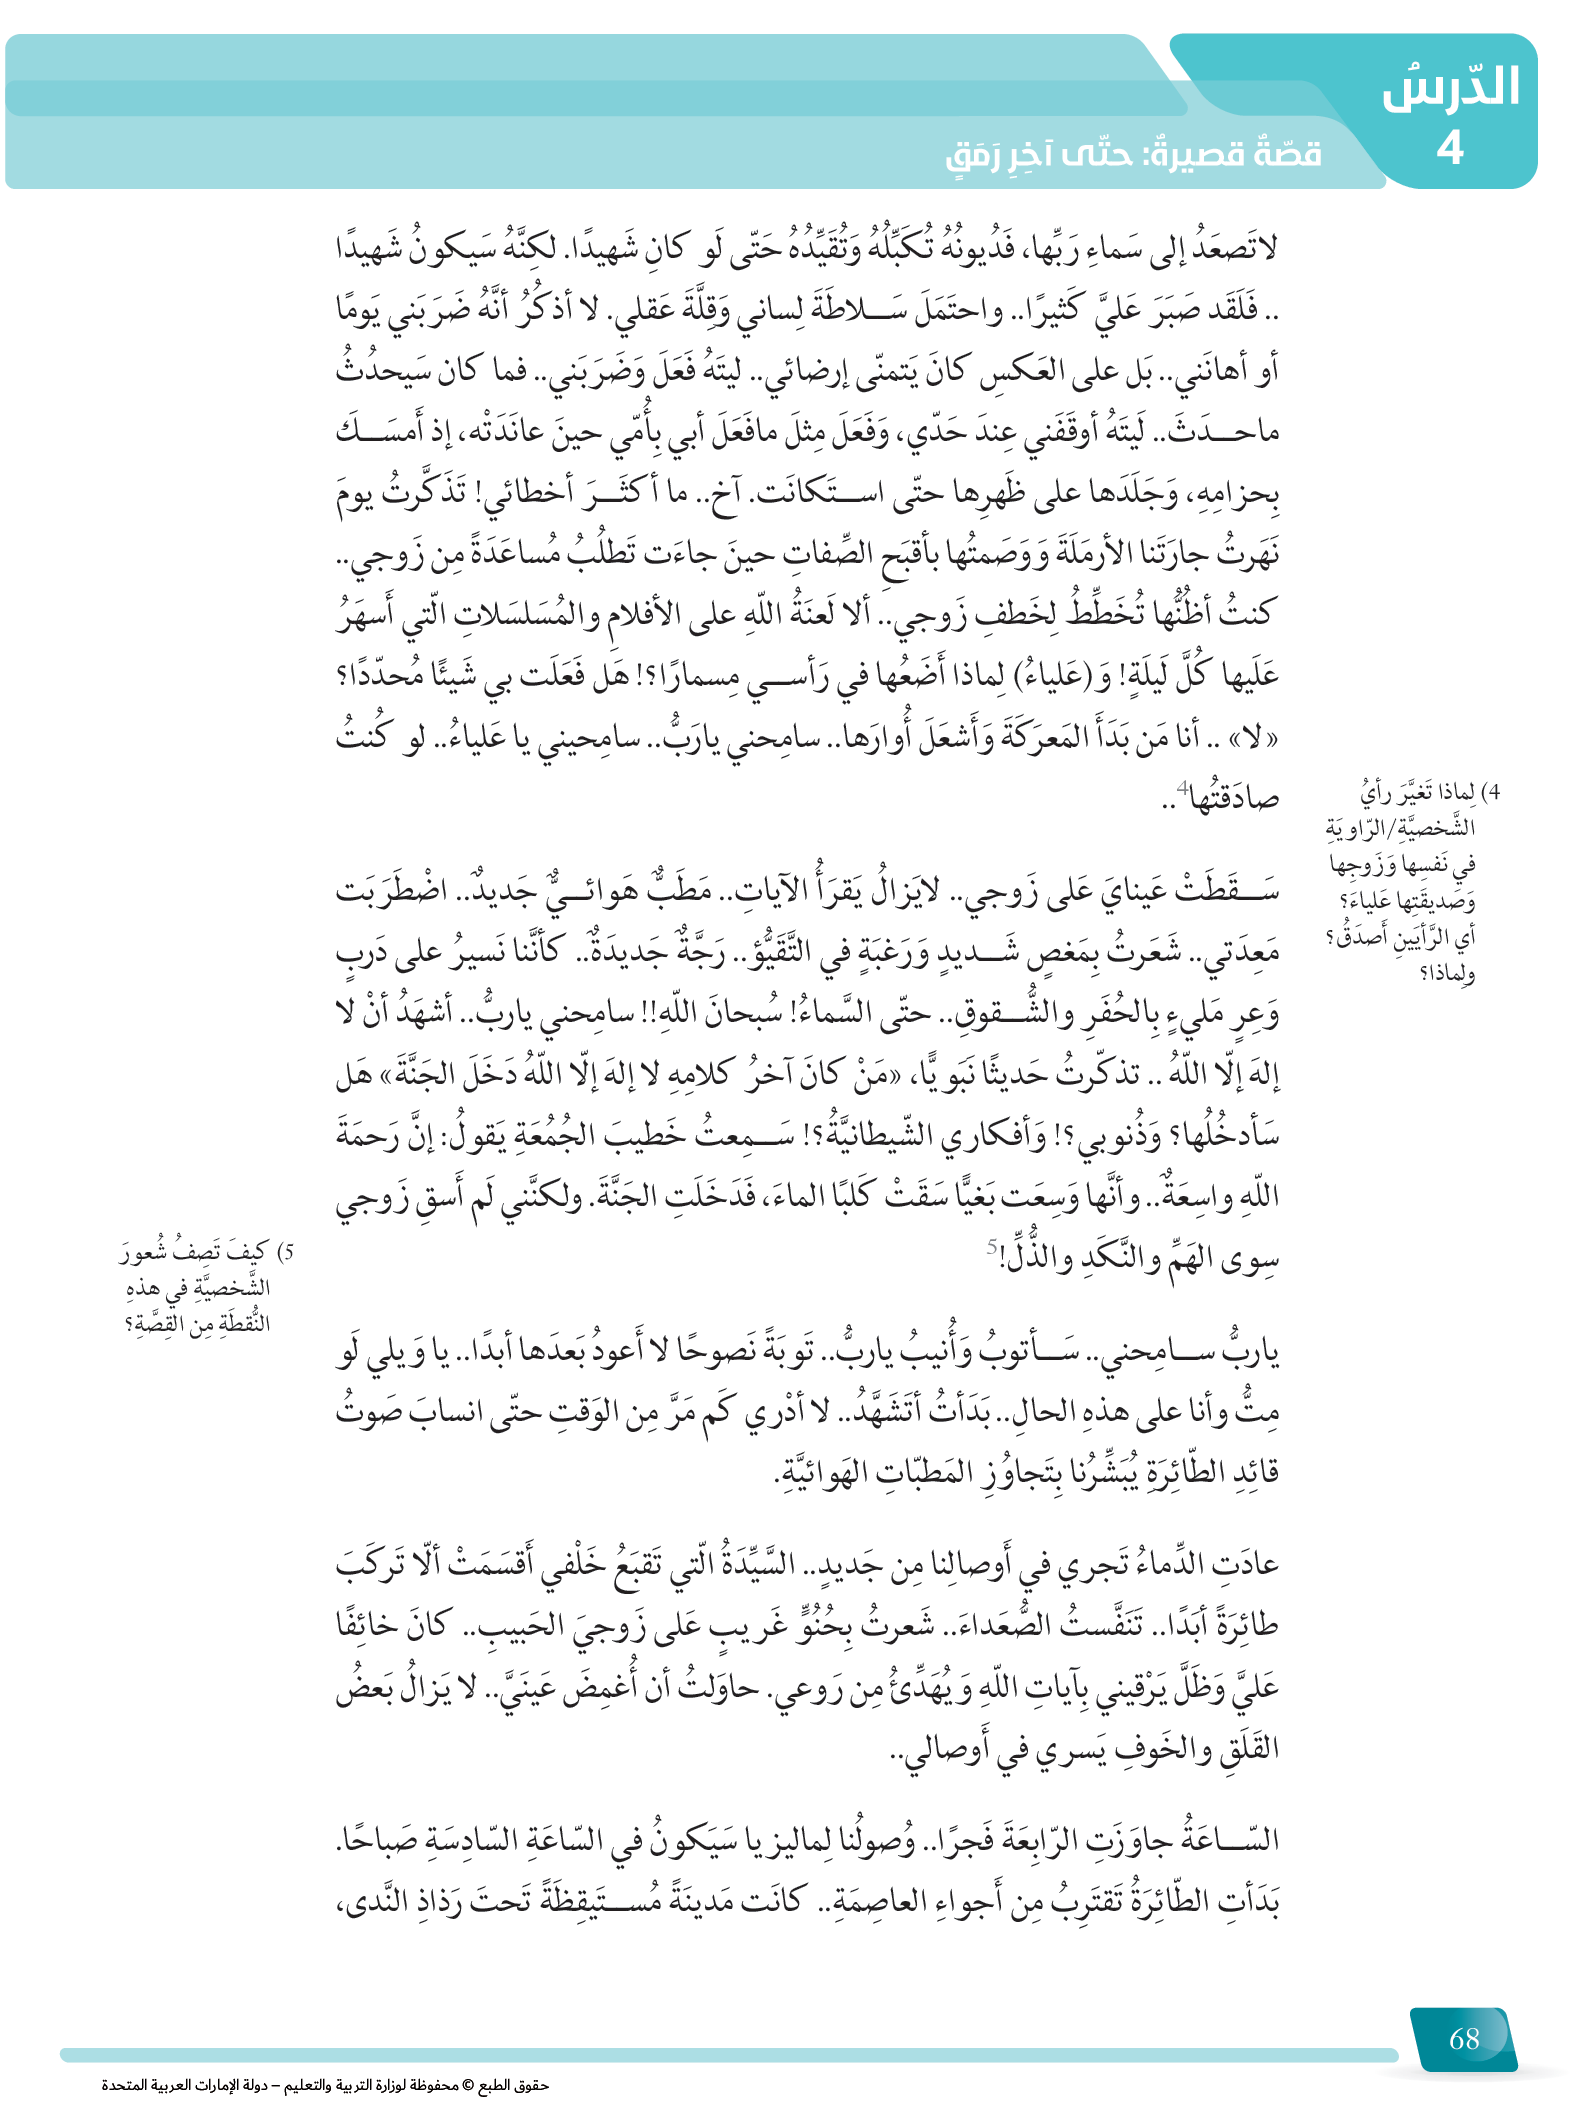 الدّرسُ
4
قصّةٌ قصيرةٌ: حتّى آخِرِ رَمَقٍ
لاتَصعَدُ إلى سَماءِ رَبِّها، فَدُيونُهُ تُكَبِّلُهُ وَتُقَيِّدُهُ حَتّى لَو كانِ شَهيدًا. لكِنَّهُ سَيكونُ شَهيدًا
.. فَلَقَد صَبَرَ عَليَّ كَثيرًا.. واحتَمَلَ سَـلاطَةَ لِساني وَقِلَّةَ عَقلي. لا أذكُرُ أنَّهُ ضَرَبَني يَومًا
أو أهانَني.. بَل على العَكسِ كانَ يَتمنّى إرضائي.. ليتَهُ فَعَلَ وَضَرَبَني.. فما كان سَيحدُثُ
ماحـدَثَ.. لَيتَهُ أوقَفَني عِندَ حَدّي، وَفَعَلَ مِثلَ مافَعَلَ أبي بِأُمّي حينَ عانَدَتْه، إذ أَمسَـكَ
بِحزامِهِ، وَجَلَدَها على ظَهرِها حتّى اسـتَكانَت. آخ.. ما أكثَـرَ أخطائي! تَذَكَّرتُ يومَ
نَهَرتُ جارَتَنا الأرمَلَةَ وَوَصَمتُها بأقبَحِ الصِّفاتِ حينَ جاءَت تَطلُبُ مُساعَدَةً مِن زَوجي..
كنتُ أظُنُّها تُخَطِّطُ لِخَطفِ زَوجي.. ألا لَعنَةُ اللّهِ على الأفلامِ والمُسَلسَلاتِ الّتي أَسهَرُ
عَلَيها كُلَّ لَيلَةٍ! وَ(عَلياءُ) لِماذا أَضَعُها في رَأسـي مِسمارًا؟! هَل فَعَلَت بي شَيئًا مُحدّدًا؟
«لا» .. أنا مَن بَدَأَ المَعرَكَةَ وَأَشعَلَ أُوارَها.. سامِحني يارَبُّ.. سامِحيني يا عَلياءُ.. لو كُنتُ
صادَقتُها4..
4) لِماذا تَغيَّرَ رأيُ
الشَّخصيَّةِ/الرّاويَةِ
في نَفسِها وَزَوجِها
وَصَديقَتِها عَلياءَ؟
أي الرَّأيَينِ أَصدَقُ؟
ولِماذا؟
سَـقَطَتْ عَينايَ عَلى زَوجي.. لايَزالُ يَقرَأُ الآياتِ.. مَطَبٌّ هَوائـيٌّ جَديدٌ.. اضْطَرَبَت
مَعِدَتي.. شَعَرتُ بِمَغصٍ شَـديدٍ وَرَغبَةٍ في التَّقَيُّؤ.. رَجَّةٌ جَديدَةٌ.. كأنَّنا نَسيرُ على دَربٍ
وَعِرٍ مَليءٍ بِالحُفَرِ والشُّـقوقِ.. حتّى السَّماءُ! سُبحانَ اللّهِ!! سامِحني ياربُّ.. أشهَدُ أنْ لا
إلهَ إلّا اللّهُ .. تذكّرتُ حَديثًا نَبَويًّا، «مَنْ كانَ آخرُ كلامِهِ لا إلهَ إلّا اللّهُ دَخَلَ الجَنَّةَ» هَل
سَأدخُلُها؟ وَذُنوبي؟! وَأفكاري الشّيطانيَّةُ؟! سَـمِعتُ خَطيبَ الجُمُعَةِ يَقولُ: إنَّ رَحمَةَ
اللّهِ واسِعَةٌ.. وأنَّها وَسِعَت بَغيًّا سَقَتْ كَلبًا الماءَ، فَدَخَلَتِ الجَنَّةَ. ولكنَّني لَم أَسقِ زَوجي
سِوى الهَمِّ والنَّكَدِ والذُّلِّ!5
5) كيفَ تَصِفُ شُعورَ
الشَّخصيَّةِ في هذهِ
النُّقطَةِ مِن القِصَّةِ؟
ياربُّ سـامِحني.. سَـأتوبُ وَأُنيبُ ياربُّ.. تَوبَةً نَصوحًا لا أَعودُ بَعدَها أبدًا.. يا وَيلي لَو
مِتُّ وأنا على هذهِ الحالِ.. بَدَأتُ أتَشَهَّدُ.. لا أدْري كَم مَرَّ مِن الوَقتِ حتّى انسابَ صَوتُ
قائِدِ الطّائِرَةِ يُبَشِّرُنا بِتَجاوُزِ المَطبّاتِ الهَوائيَّةِ.
عادَتِ الدِّماءُ تَجري في أَوصالِنا مِن جَديدٍ.. السَّيِّدَةُ الّتي تَقبَعُ خَلْفي أَقسَمَتْ ألّا تَركَبَ
طائِرَةً أبَدًا.. تَنَفَّستُ الصُّعَداءَ.. شَعرتُ بِحُنُوٍّ غَريبٍ عَلى زَوجيَ الحَبيبِ.. كانَ خائِفًا
عَليَّ وَظَلَّ يَرْقيني بِآياتِ اللّهِ وَيُهَدِّئُ مِن رَوعي. حاوَلتُ أن أُغمِضَ عَينَيَّ.. لا يَزالُ بَعضُ
القَلَقِ والخَوفِ يَسري في أَوصالي..
السّـاعَةُ جاوَزَتِ الرّابِعَةَ فَجرًا.. وُصولُنا لِماليزيا سَيَكونُ في السّاعَةِ السّادِسَةِ صَباحًا.
بَدَأتِ الطّائِرَةُ تَقتَرِبُ مِن أَجواءِ العاصِمَةِ.. كانَت مَدينَةً مُسـتَيقِظَةً تَحتَ رَذاذِ النَّدى،
68
حقوق الطبع © محفوظة لوزارة التربية والتعليم – دولة الإمارات العربية المتحدة